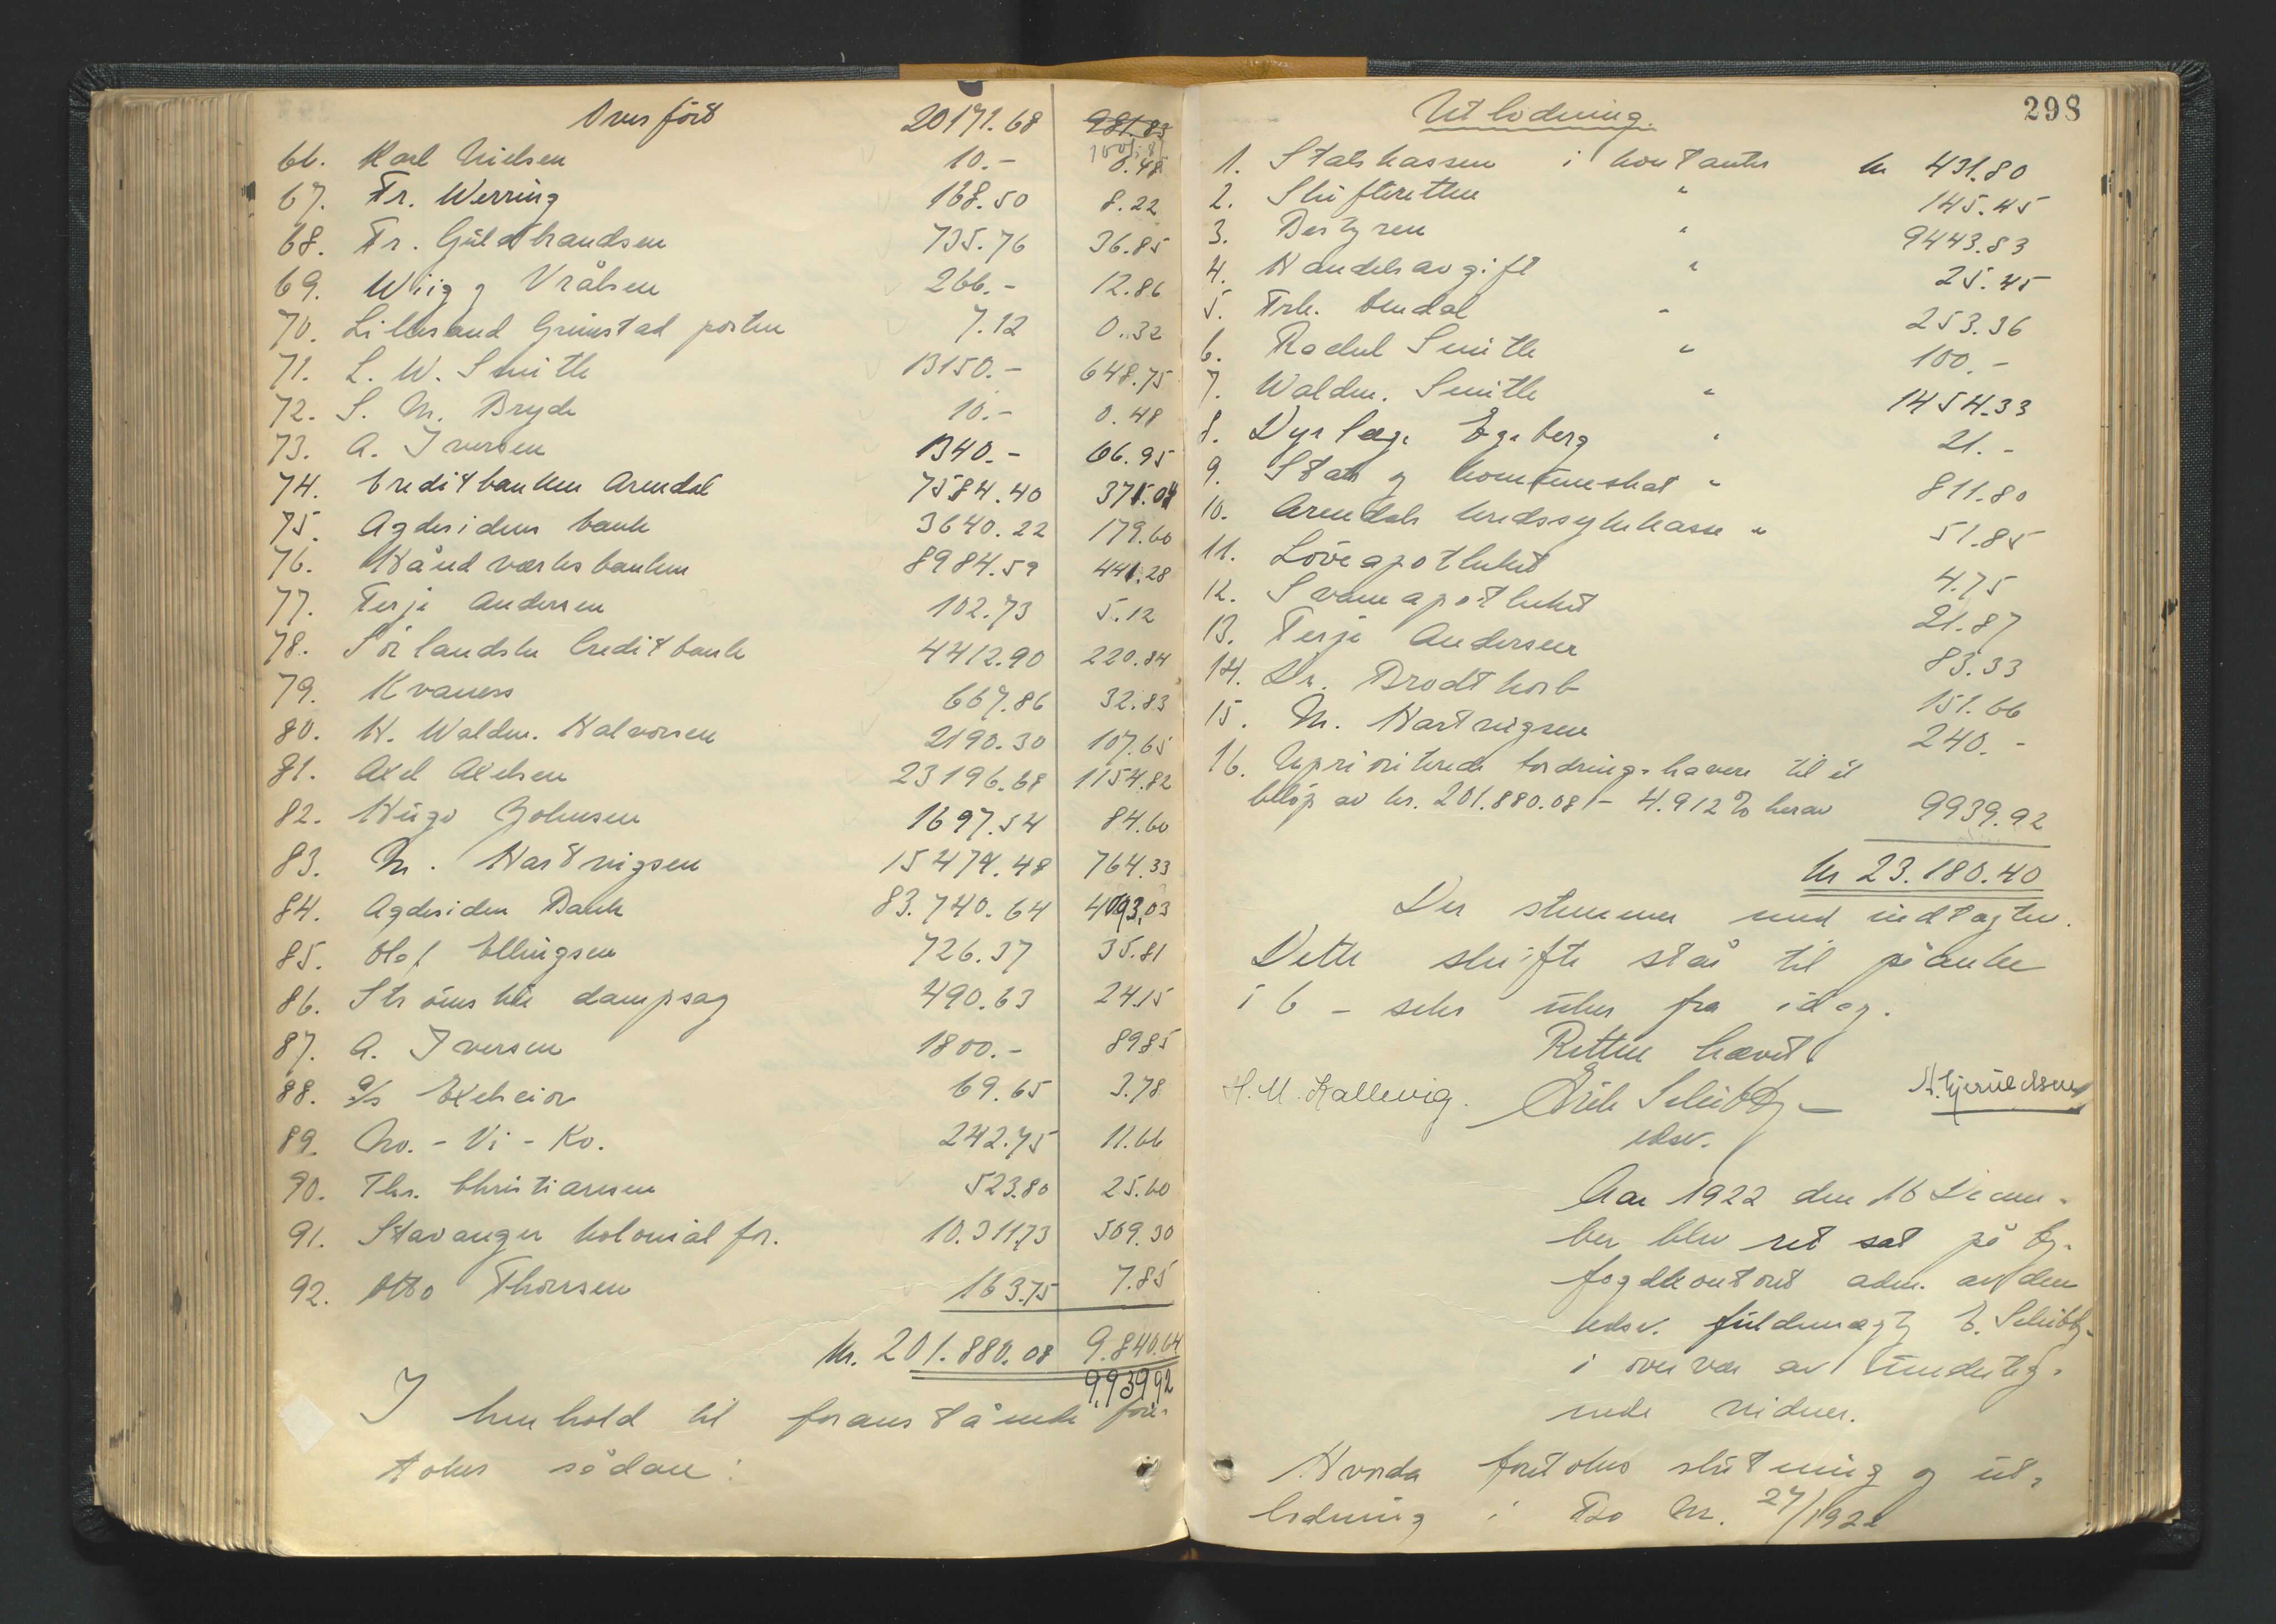 Overført 20171.68 981.83
66. Karl Nielsen 10.- 0.48
67. Fr. Werring 168.50 8.22
68. Fr. Guldbrandsen 735.76 36.85
69. Wiig g Vrålsen 266.- 12.86
70. Lillesand Grimstad posten 7.12 0.32
71. L. W. Smith 13150.- 648.75
72. S. M. Bryde 10.- 0.48
73. A. Iversen 1340.- 66.95
74. Creditbanken Arendal 7584.40 371.04
75. Agdesidens bank 3640.22 179.60
76. Håndværksbanken 8984.59 441.28
77. Terje Andersen 102.73 5.12
78. Sørlandske Creditbank 4412.90 220.84
79. Kvaness 667.86 32.83
80. H. Waldm. Halvorsen 2190.30 107.65
81. Axel Axelsen 23196.68 1154.82
82. Hugo Johnsen 1697.54 84.60
83. M. Hartvigsen 15474.48 764.33
84. Agdesiden Bank 83.740.64 4093.03
85. Olaf Ellingsen 726.37 35.81
86. Strømsbu dampsag 490.63 24.15
87. A. Iversen 1800.- 89.85
88. a/s Excelsior 69.65 3.78
89. No. - Vi - Ko. 242.75 11.66
90. Thr. Christiansen 523.80 25.60
91. Stavanger kolonial for. 10.311.73 509.30
92. Otto Thorsen 163.75 7.85
Kr. 201.880.08 9.840.64
9.939.92
I henhold til foranstående fore-
tokes sådan:
298
Utlodning.
1. Statskassen i kontanter kr 431.80
2. Skifteretten " 145.45
3. Bestyren " 9443.83
4. Handelsavgift " 25.45
5. Frk. Omdal " 253.36
6. Rachel Smith " 100.-
7. Waldm. Smith " 1454.33
8. Dyrlæge Egeberg " 21.-
9. Stats g kommuneskat " 811.80
10. Arendals kredssykekasse " 51.85
11. Løveapotheket 4.75
12. Svaneapotheket 21.87
13. Terje Andersen 83.33
14. Dr. Brodtkorb 151.66
15. M. Hartvigsen 240.-
16. Uprioriterede fordringshavere til et
beløp av kr. 201.880.08 - 4.912 % herav 9939.92
kr 23.180.40
Der stemmer med indtægten.
Dette skifte står til påanke
i 6 - seks uker fra idag.
Retten hævet
H. M. Kallevig. Erik Schibby
edsv.
Aar 1922 den 16 Decem-
ber blev ret sat på by-
fogdkontoret adm. av den
edsv. fuldmægtg E. Schibby
i overvær av underteg-
nede vidner.
Hvorda foretokes slutning g ut-
lodning i Bo Nr. 27/1922